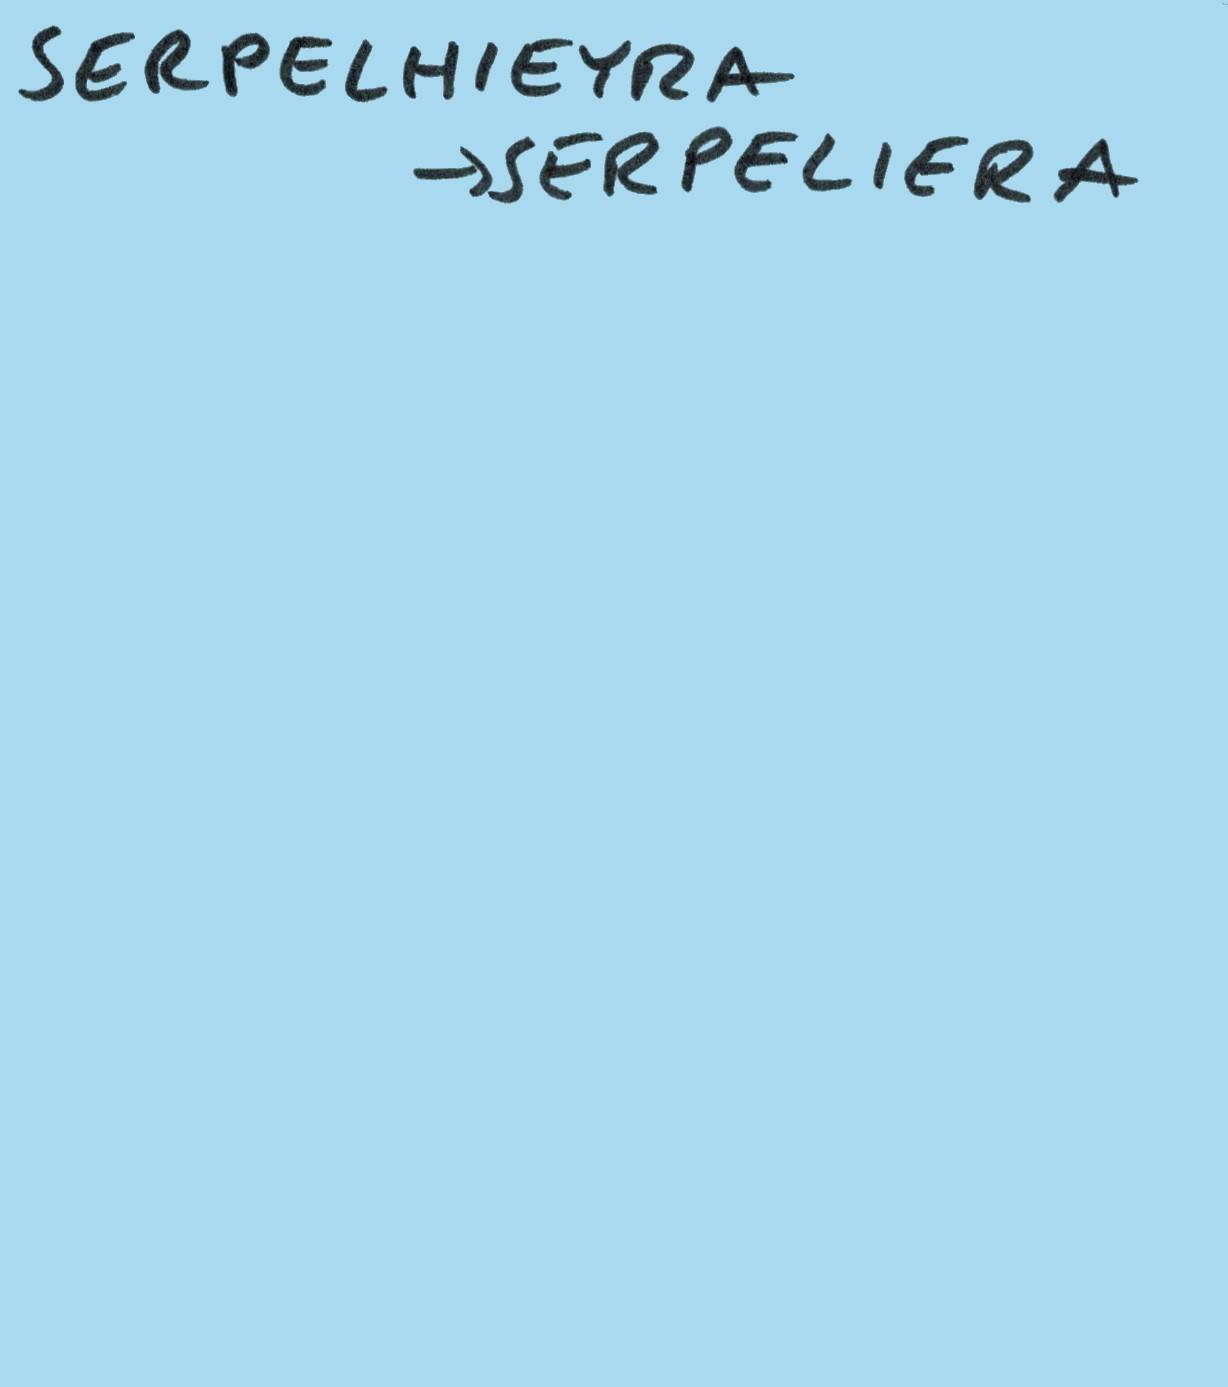 SERPELHIEYRA
→SERPELIERA